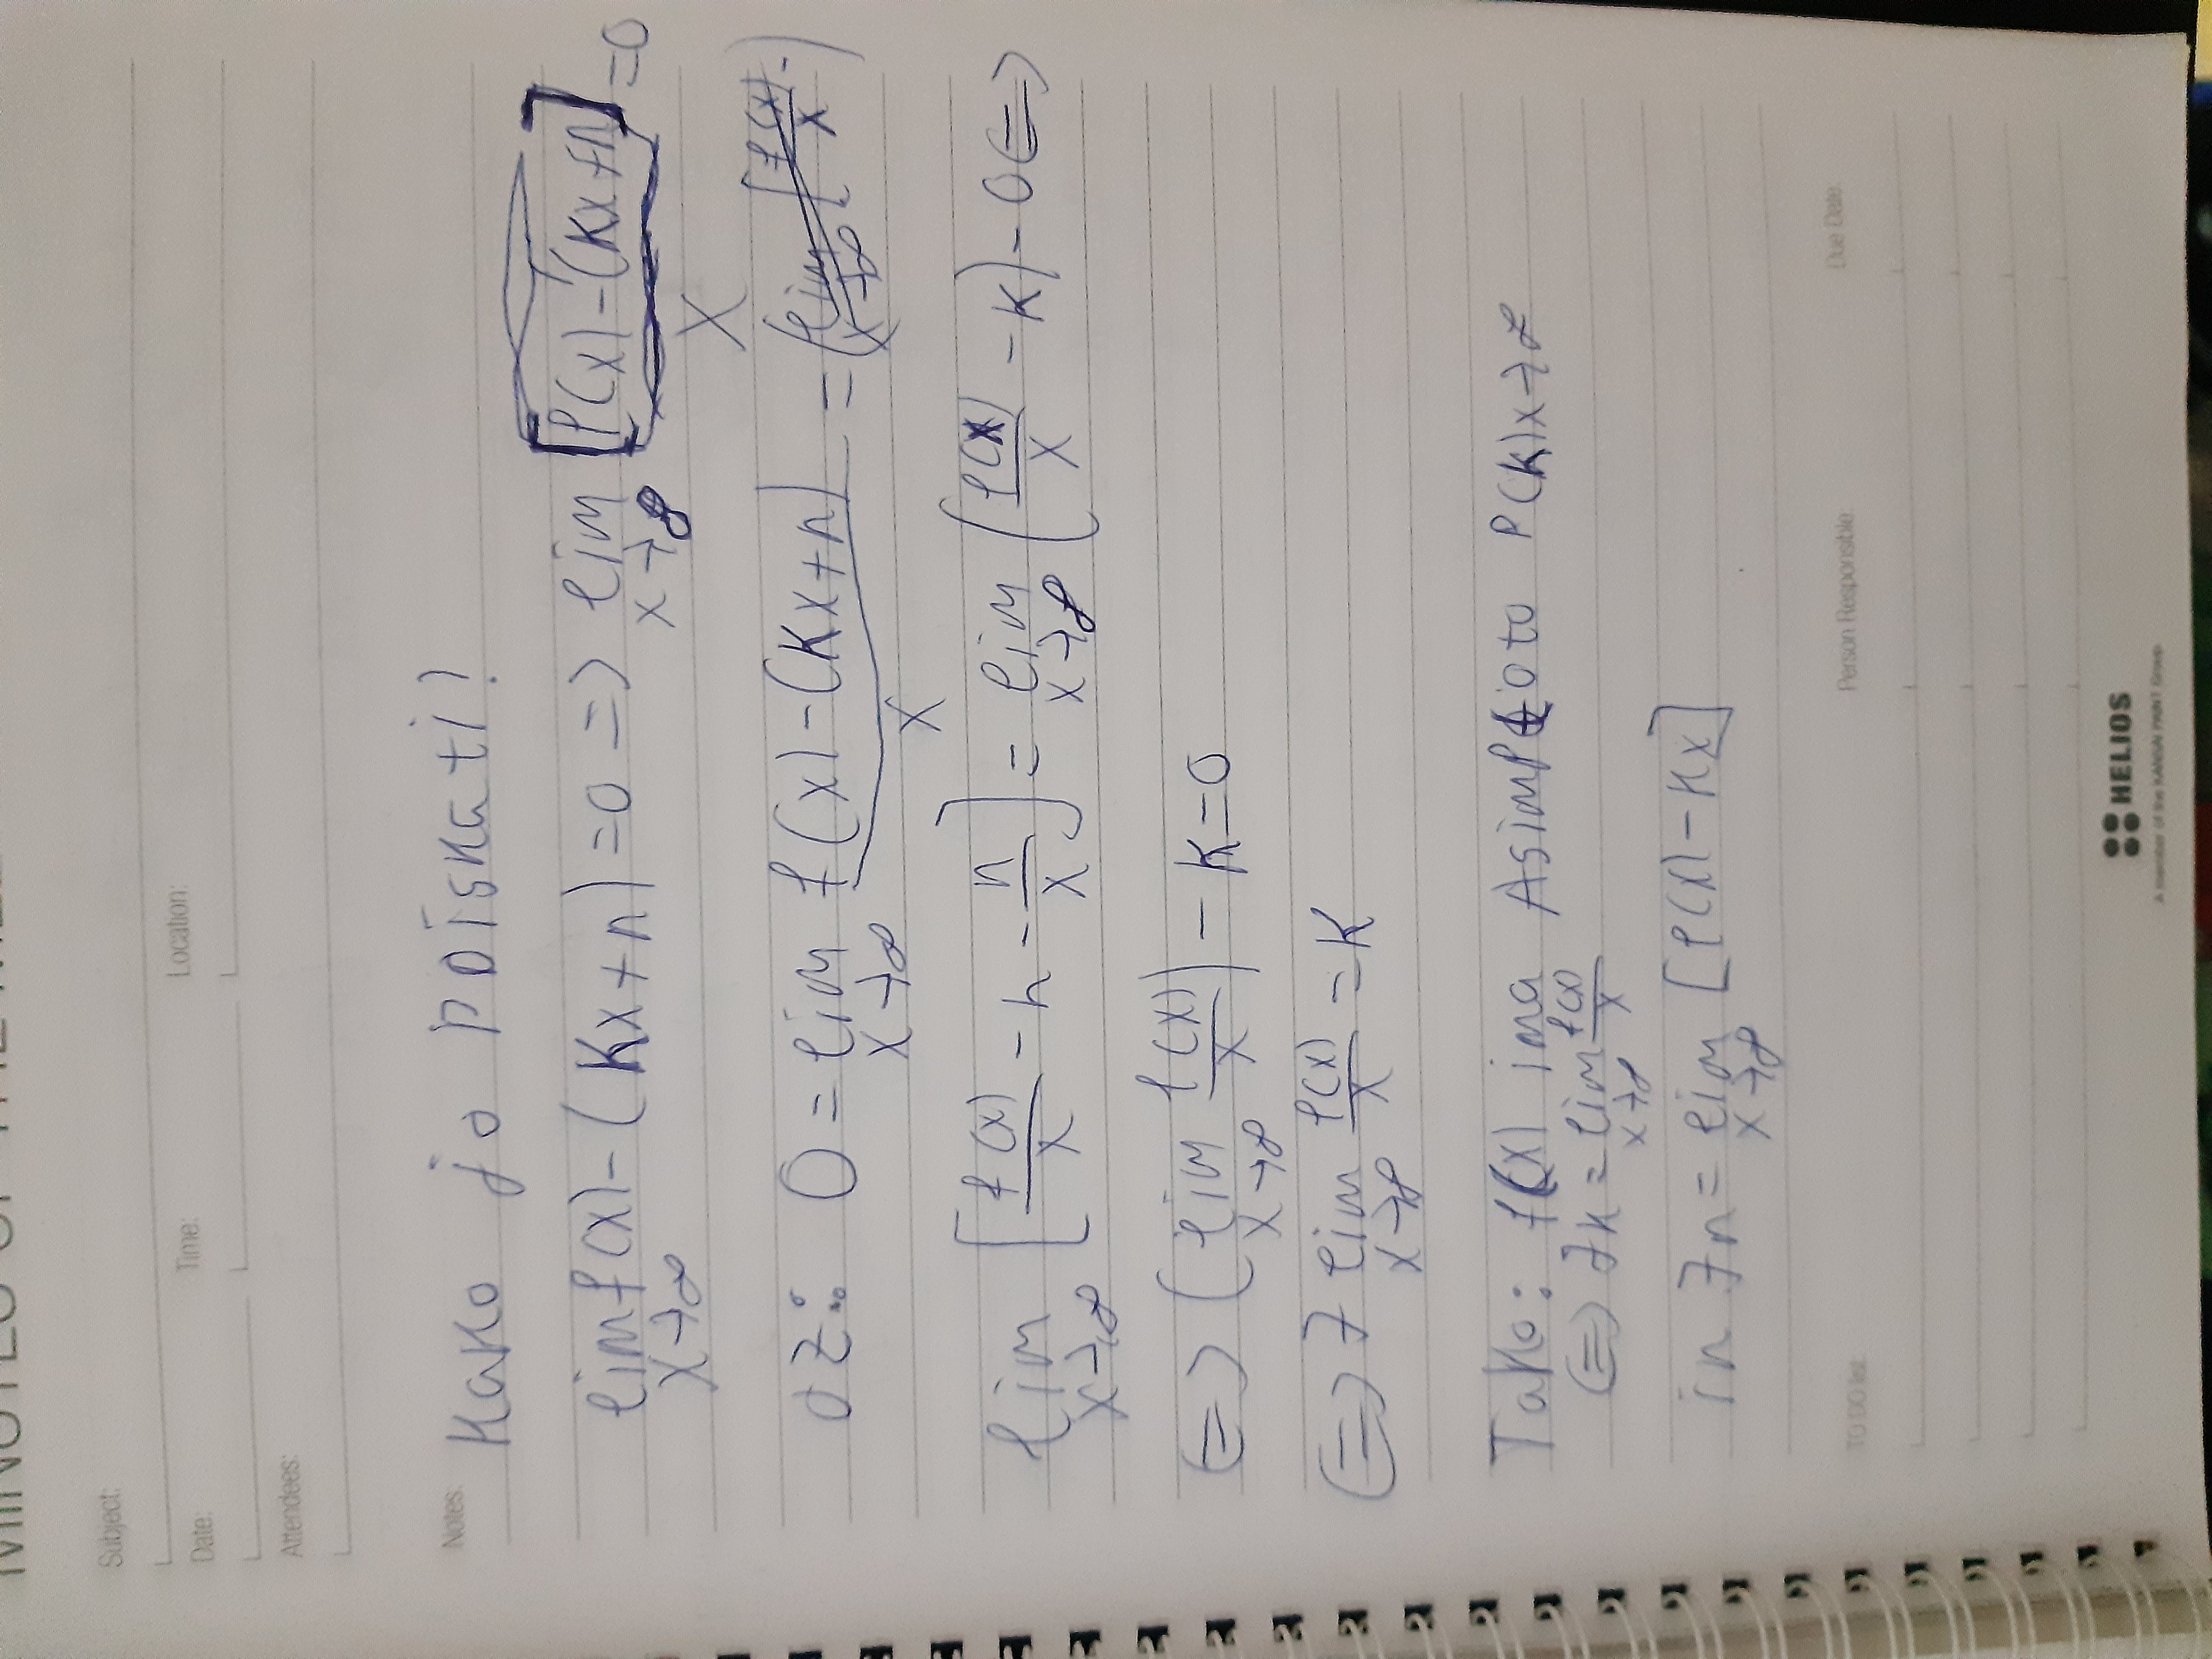 Subject:
Date: Time: Location:
Attendees:
Notes: Kako jo poiskati?
lim f(x) - (Kx+n) = 0 => lim [f(x) - (Kx+n)] = 0
x→∞ x→∞ x
oz: 0 = lim f(x) - (Kx+n) = (lim [f(x)/x - )
x→∞ x x→∞
lim [f(x)/x - k - n/x] = lim (f(x)/x - k) - 0 <=>
x→∞ x→∞
<=> (lim f(x)/x) - k = 0
x→∞
<=> ∃ lim f(x)/x = k
x→∞
Tako: f(x) ima Asimptoto P(k)x→∞
<=> ∃k = lim f(x)/x
x→∞
in ∃n = lim [f(x) - kx]
x→∞
TO DO list: Person Responsible: Due Date:
HELIOS
A member of the KANSAI PAINT Group